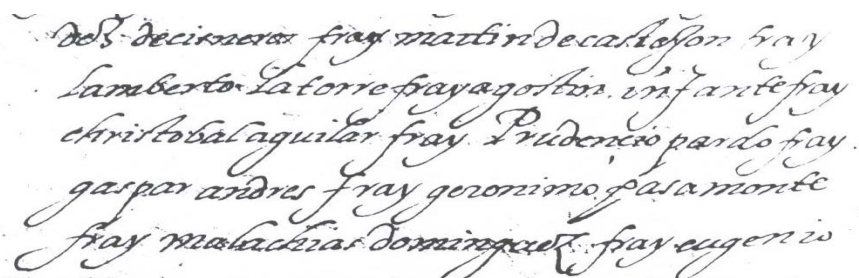 dez decisneros fray martin decastejon fray
Lamberto Latorre fray agostin infante fray
christobal aguilar fray Prudencio pardo fray
gaspar andres fray geronimo pasamonte
fray malachias dominguez fray eugenio